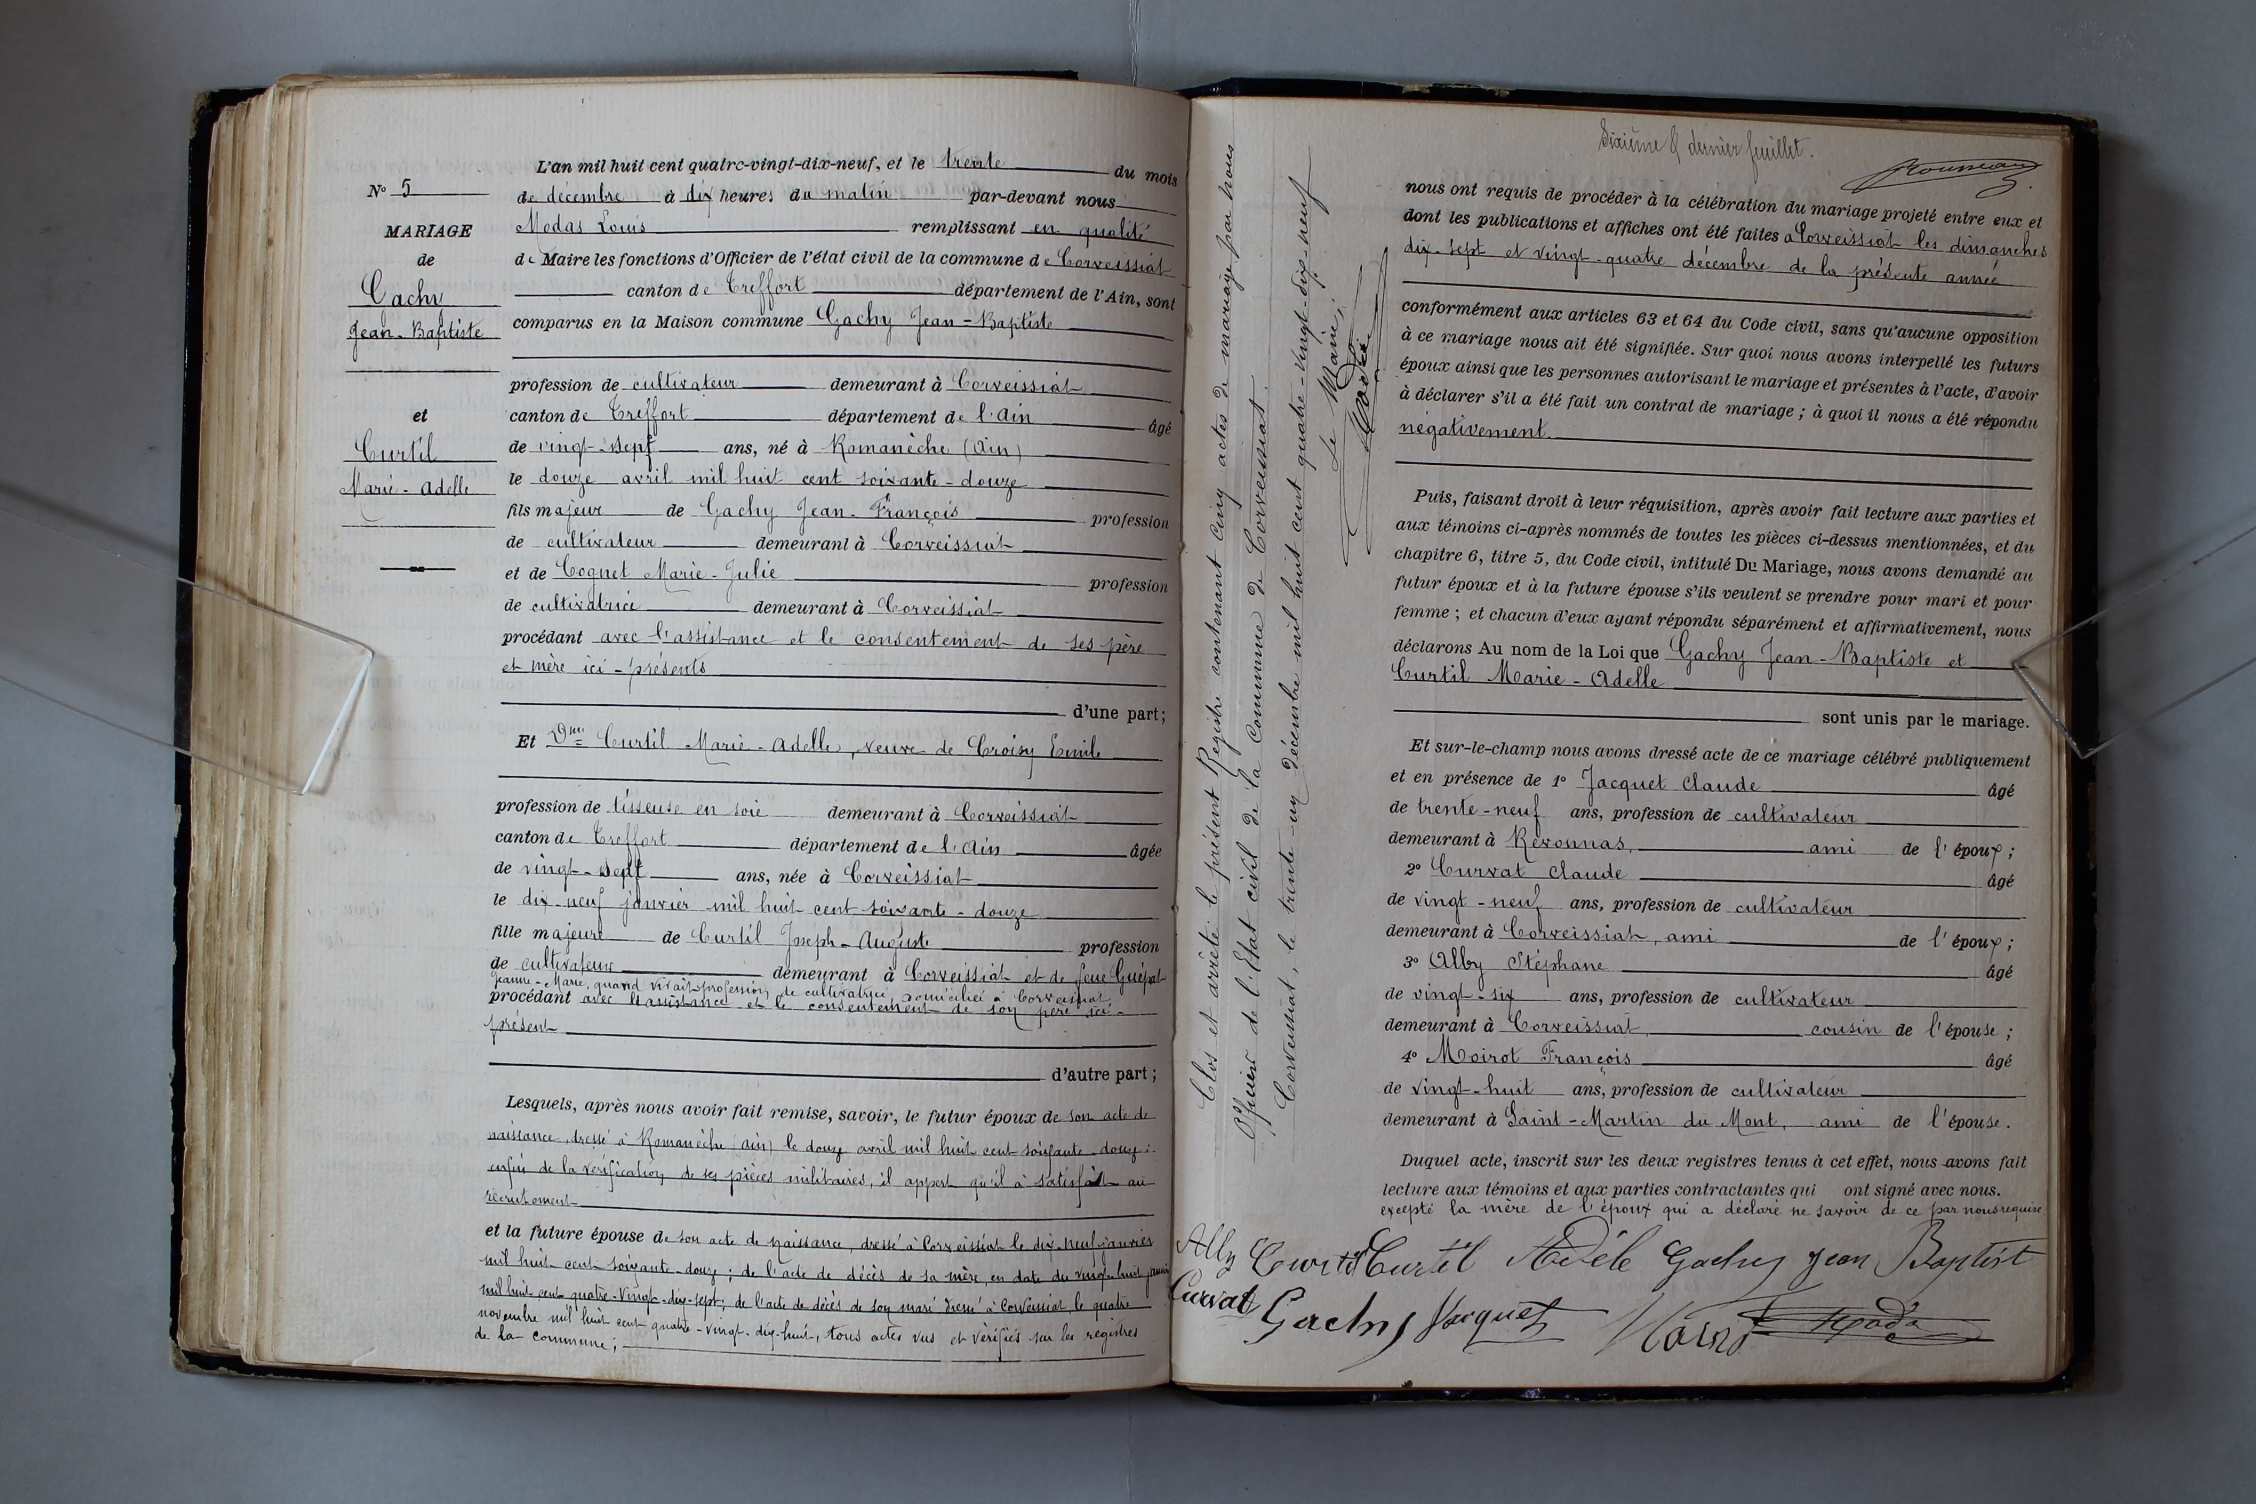 L'an mil huit cent quatre-vingt-dix-neuf, et le trente du mois
N° 5
de décembre à dix heures du matin par-devant nous
MARIAGE
Modas Louis remplissant en qualité
de
de Maire les fonctions d'Officier de l'état civil de la commune de Corveissiat
Gachy
canton de Treffort département de l'Ain, sont
Jean-Baptiste
comparus en la Maison commune Gachy Jean-Baptiste
profession de cultivateur demeurant à Corveissiat
et
canton de Treffort département de l'Ain âgé
Curtil
de vingt-sept ans, né à Romanèche (Ain)
Marie-Adelle
le douze avril mil huit cent soixante-douze
fils majeur de Gachy Jean-François profession
de cultivateur demeurant à Corveissiat
et de Coquet Marie-Julie profession
de cultivatrice demeurant à Corveissiat
procédant avec l'assistance et le consentement de ses père
et mère ici-présents
d'une part;
Et Dme Curtil Marie-Adelle, veuve de Croisy Emile
profession de tisseuse en soie demeurant à Corveissiat
canton de Treffort département de l'Ain âgée
de vingt-sept ans, née à Corveissiat
le dix-neuf janvier mil huit cent soixante-douze
fille majeure de Curtil Joseph-Auguste profession
de cultivateur demeurant à Corveissiat et de feue Guépat
Jeanne-Marie, quand vivait profession de cultivatrice, domiciliée à Corveissiat,
procédant avec l'assistance et le consentement de son père ici-
présent
d'autre part;
Lesquels, après nous avoir fait remise, savoir, le futur époux de son acte de
naissance, dressé à Romanèche (Ain) le douze avril mil huit cent soixante-douze;
enfin de la vérification de ses pièces militaires, il appert qu'il a satisfait au
recrutement
et la future épouse de son acte de naissance, dressé à Corveissiat le dix-neuf janvier
mil huit cent soixante-douze; de l'acte de décès de sa mère, en date du vingt-huit janvier
mil huit cent quatre-vingt-dix-sept; de l'acte de décès de son mari dressé à Corveissiat, le quatre
novembre mil huit cent quatre-vingt-dix-huit, tous actes vus et vérifiés sur les registres
de la commune;
Clos et arrêté le présent Registre contenant cinq actes de mariage par nous
Officier de l'Etat civil de la commune de Corveissiat.
Corveissiat, le trente-un décembre mil huit cent quatre-vingt-dix-neuf
Le Maire,
Modas
Sixième & dernier feuillet.
nous ont requis de procéder à la célébration du mariage projeté entre eux et
dont les publications et affiches ont été faites à Corveissiat les dimanches
dix-sept et vingt-quatre décembre de la présente année
conformément aux articles 63 et 64 du Code civil, sans qu'aucune opposition
à ce mariage nous ait été signifiée. Sur quoi nous avons interpellé les futurs
époux ainsi que les personnes autorisant le mariage et présentes à l'acte, d'avoir
à déclarer s'il a été fait un contrat de mariage; à quoi il nous a été répondu
négativement.
Puis, faisant droit à leur réquisition, après avoir fait lecture aux parties et
aux témoins ci-après nommés de toutes les pièces ci-dessus mentionnées, et du
chapitre 6, titre 5, du Code civil, intitulé Du Mariage, nous avons demandé au
futur époux et à la future épouse s'ils veulent se prendre pour mari et pour
femme; et chacun d'eux ayant répondu séparément et affirmativement, nous
déclarons Au nom de la Loi que Gachy Jean-Baptiste et
Curtil Marie-Adelle
sont unis par le mariage.
Et sur-le-champ nous avons dressé acte de ce mariage célébré publiquement
et en présence de 1° Jacquet Claude âgé
de trente-neuf ans, profession de cultivateur
demeurant à Revonnas, ami de l'époux;
2° Curvat Claude âgé
de vingt-neuf ans, profession de cultivateur
demeurant à Corveissiat, ami de l'époux;
3° Alby Stéphane âgé
de vingt-six ans, profession de cultivateur
demeurant à Corveissiat, cousin de l'épouse;
4° Moirot François âgé
de vingt-huit ans, profession de cultivateur
demeurant à Saint-Martin du Mont, ami de l'épouse.
Duquel acte, inscrit sur les deux registres tenus à cet effet, nous avons fait
lecture aux témoins et aux parties contractantes qui ont signé avec nous.
excepté la mère de l'époux qui a déclaré ne savoir de ce par nous requise
Alby Curtil Curtil Adèle Gachy Jean Baptist
Curvat Gachy Jacquet Moirot Modas